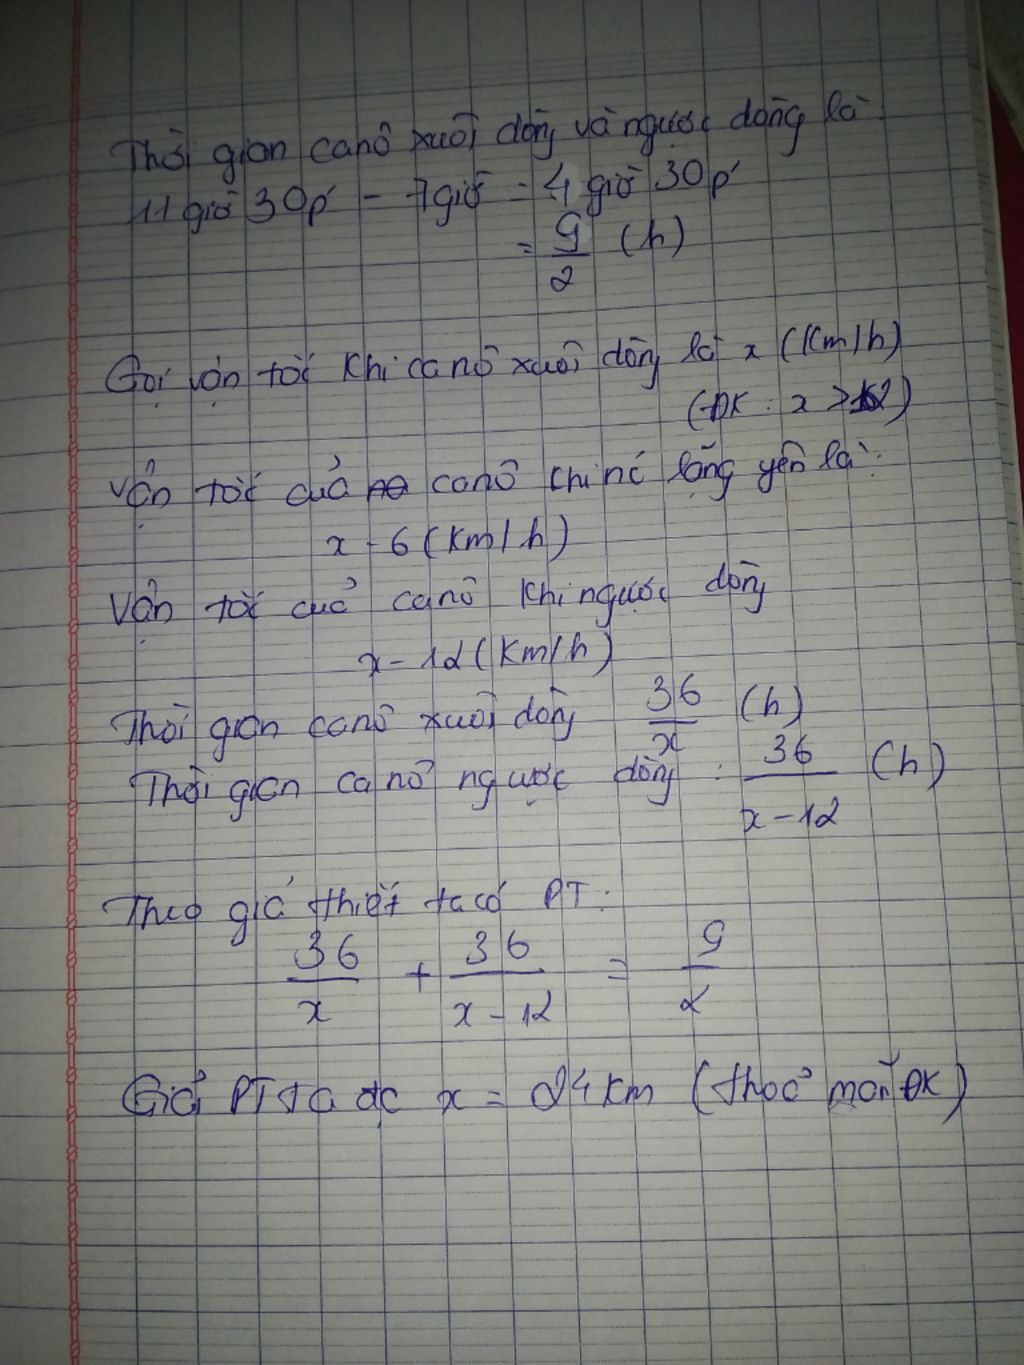 Thời gian canô xuôi dòng và ngược dòng là:
11 giờ 30p' - 7giờ = 4 giờ 30p'
= 9/2 (h)
Gọi vận tốc khi canô xuôi dòng là x (Km/h)
(ĐK: x > 12)
Vận tốc của canô khi nc lặng yên là:
x - 6 (Km/h)
Vận tốc của canô khi ngược dòng
x - 12 (Km/h)
Thời gian canô xuôi dòng 36/x (h)
Thời gian canô ngược dòng : 36/(x - 12) (h)
Theo giả thiết ta có PT:
36/x + 36/(x - 12) = 9/2
Giải PT ta đc x = 24 Km (thoả mãn ĐK)